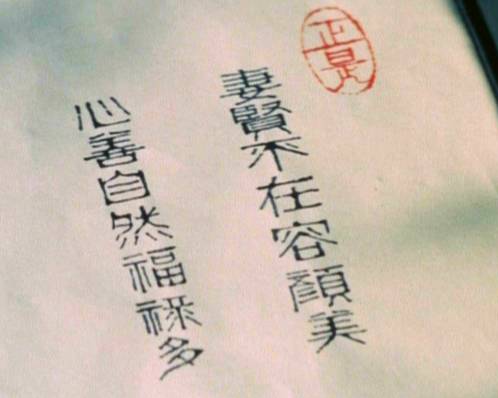 正是
妻賢不在容顏美
心善自然福祿多